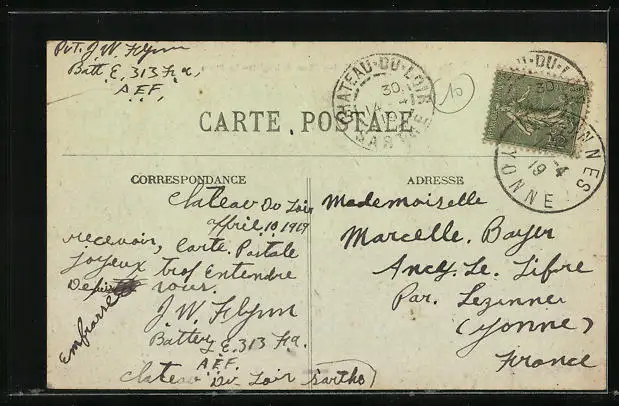 Pvt. J. W. Flynn
Batt E, 313 F.a,
A.E.F.
CHATEAU-DU-LOIR
30
14-4
19
SARTHE
10
CARTE POSTALE
CORRESPONDANCE
Chateau Du Loir
april 10, 1919
recevoir, Carte. Postale
Joyeux trof Entendre
vous.
Embrassee
J. W. Flynn
Battery E. 313 F.a.
A.E.F.
Chateau Du Loir Sarthe
ADRESSE
Mademoiselle
Marcelle. Boyer
Ancy. Le. Libre
Par. Lezinnes
(Yonne)
France
19
YONNE